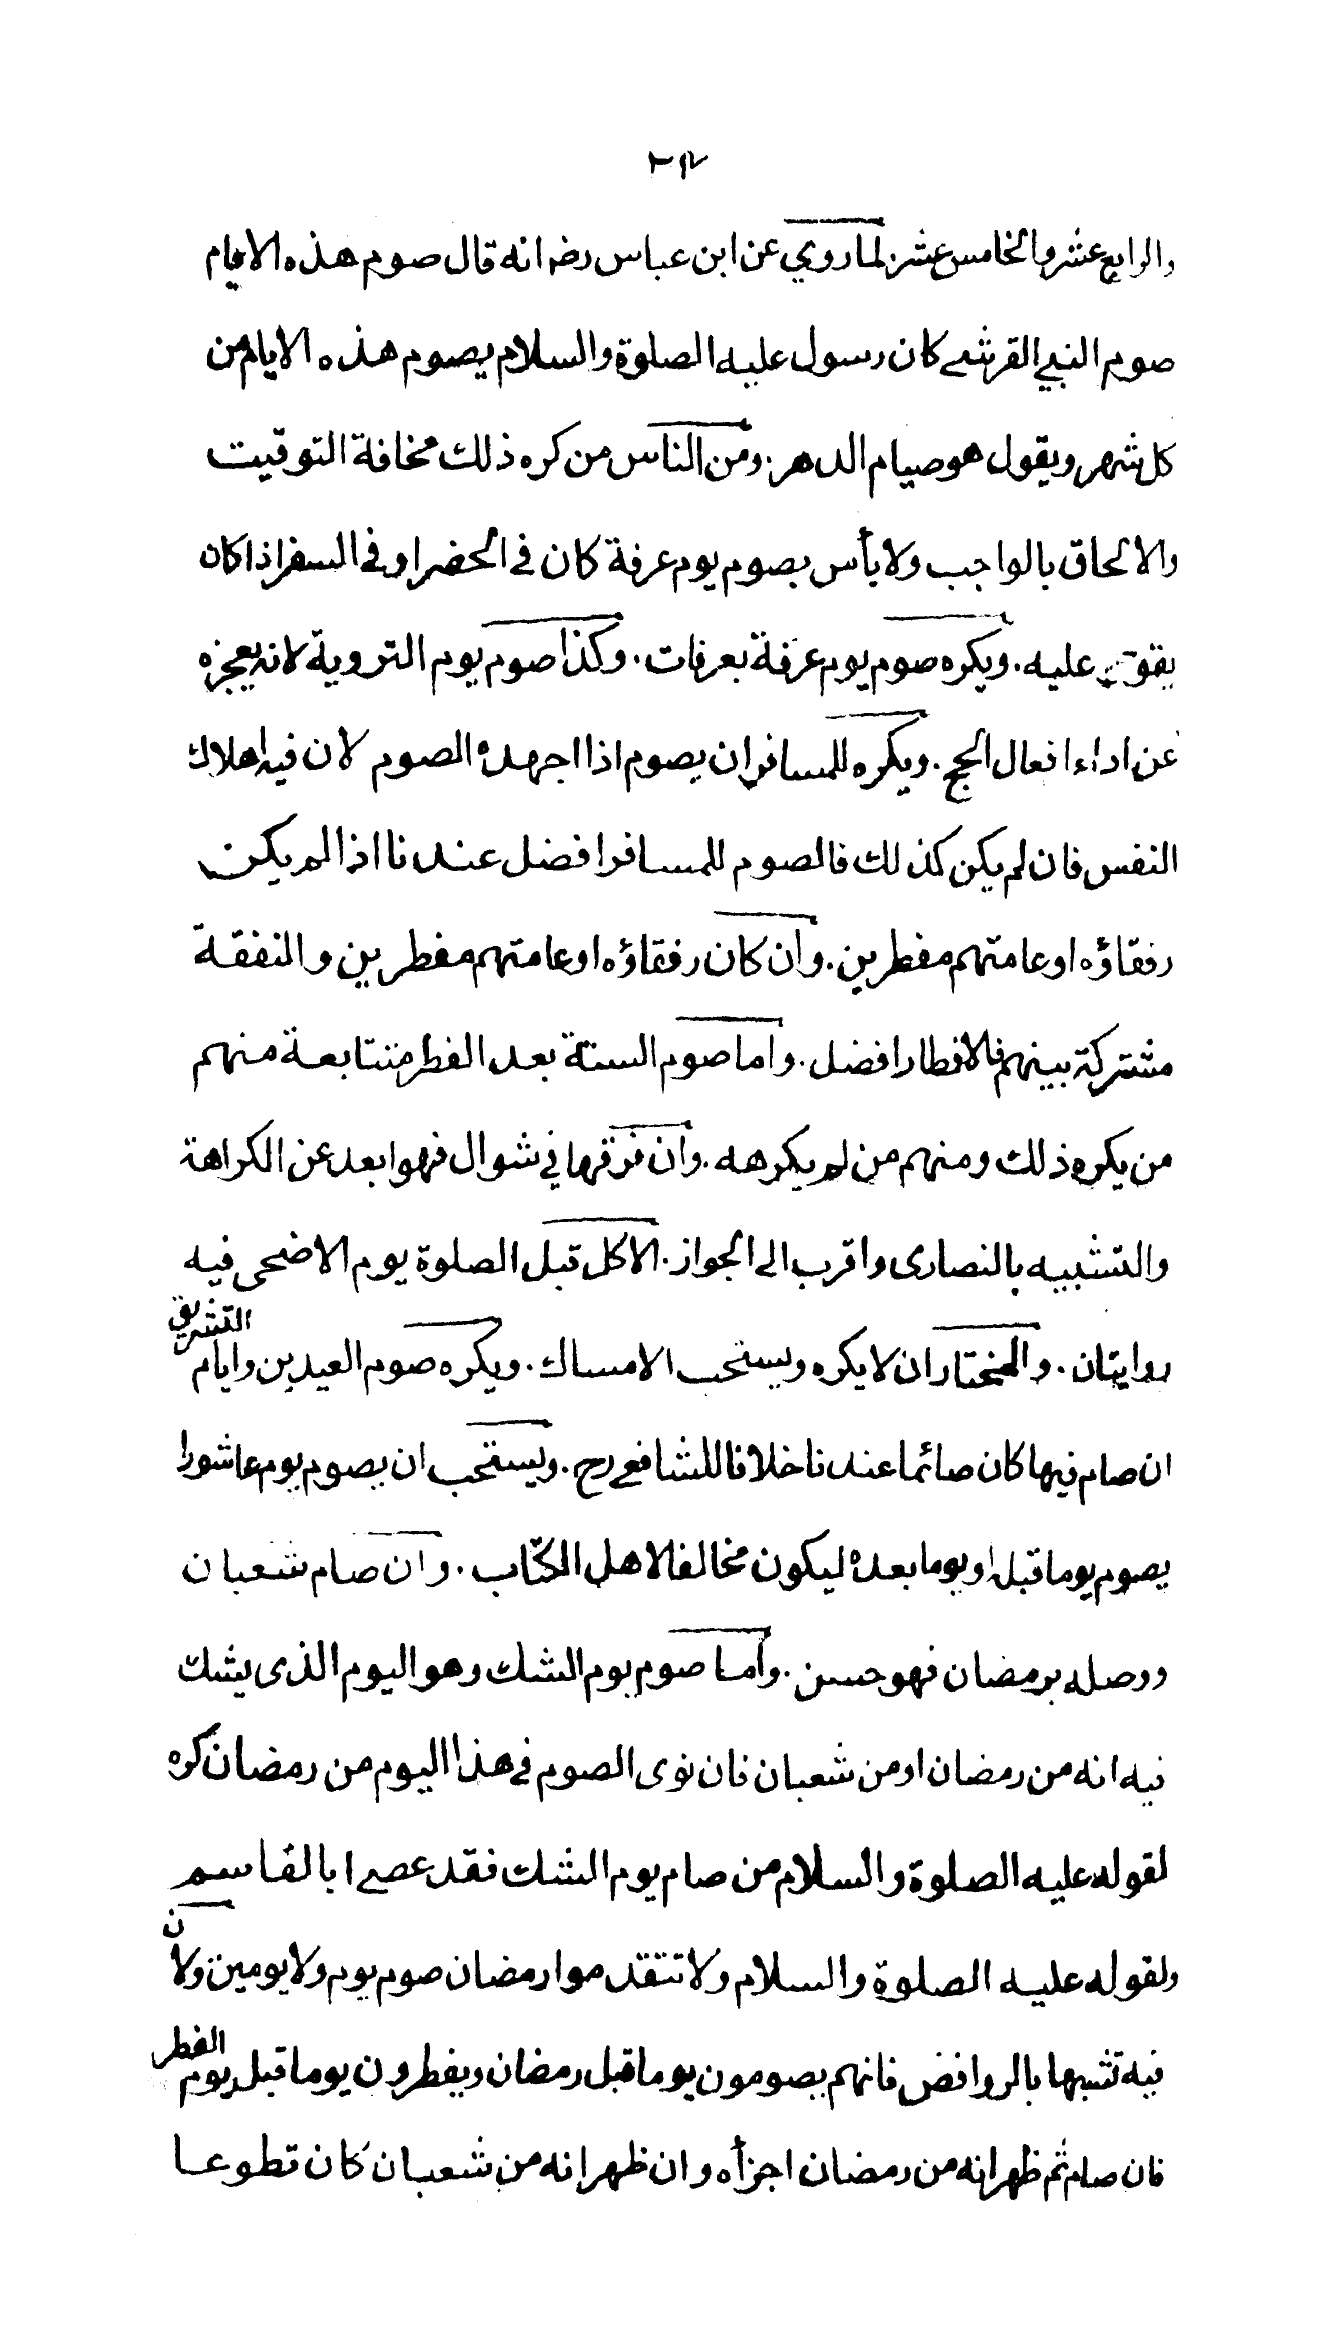 والرابع عشر والخامس عشر. لما روي عن ابن عباس رضـ انه قال صوم هذه الايام
صوم النبي القرشي كان رسول عليه الصلوة والسلام يصوم هذه الايام من
كل شهر ويقول هو صيام الدهر. ومن الناس من كره ذلك مخافة التوقيت
والالحاق بالواجب ولا بأس بصوم يوم عرفة كان في الحضر او في السفر اذا كان
يقوى عليه. ويكره صوم يوم عرفة بعرفات. وكذا صوم يوم التروية لانه يعجزه
عن اداء افعال الحج. ويكره للمسافر ان يصوم اذا اجهده الصوم لان فيه اهلاك
النفس فان لم يكن كذلك فالصوم للمسافر افضل عندنا اذا لم يكن
رفقاؤه او عامتهم مفطرين. وان كان رفقاؤه او عامتهم مفطرين والنفقة
مشتركة بينهم فالافطار افضل. واما صوم الستة بعد الفطر متتابعة منهم
من يكره ذلك ومنهم من لم يكرهه. وان فرقها في شوال فهو ابعد عن الكراهة
والتشبيه بالنصارى واقرب الى الجواز. الاكل قبل الصلوة يوم الاضحى فيه
روايتان. والمختار ان لا يكره ويستحب الامساك. ويكره صوم العيدين وايام التشريق
ان صام فيها كان صائما عندنا خلافا للشافعي رح. ويستحب ان يصوم يوم عاشورا
يصوم يوما قبله او يوما بعده ليكون مخالفا لاهل الكتاب. وان صام شعبان
ووصله برمضان فهو حسن. واما صوم يوم الشك وهو اليوم الذى يشك
فيه انه من رمضان او من شعبان فان نوى الصوم في هذا اليوم من رمضان كره
لقوله عليه الصلوة والسلام من صام يوم الشك فقد عصى ابا القاسم
ولقوله عليه الصلوة والسلام ولا تتقدموا رمضان صوم يوم ولا يومين ولان
فيه تشبها بالروافض فانهم يصومون يوما قبل رمضان ويفطرون يوما قبل يوم الفطر
فان صام ثم ظهر انه من رمضان اجزأه وان ظهر انه من شعبان كان تطوعا